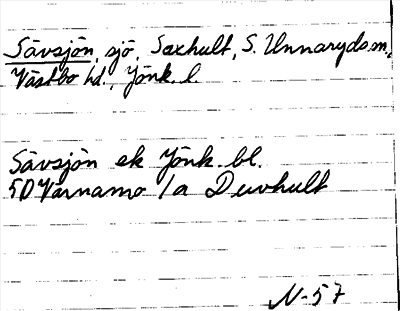 Sävsjön, sjö, Saxhult, S. Unnaryds sn,
Västbo hd., Jönk. l.
Sävsjön ek Jönk. bl.
5D Värnamo 1a Duvhult
N-57